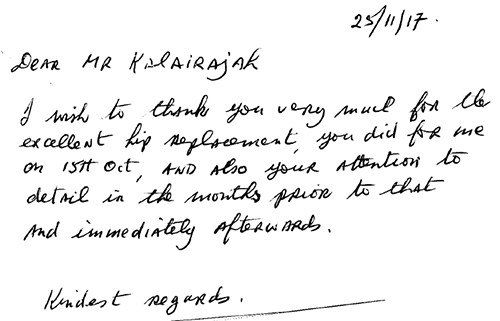 23/11/17.
Dear Mr Kalairajah
I wish to thank you very much for the
excellent hip replacement, you did for me
on 15th Oct, and also your attention to
detail in the months prior to that
and immediately afterwards.
Kindest regards.